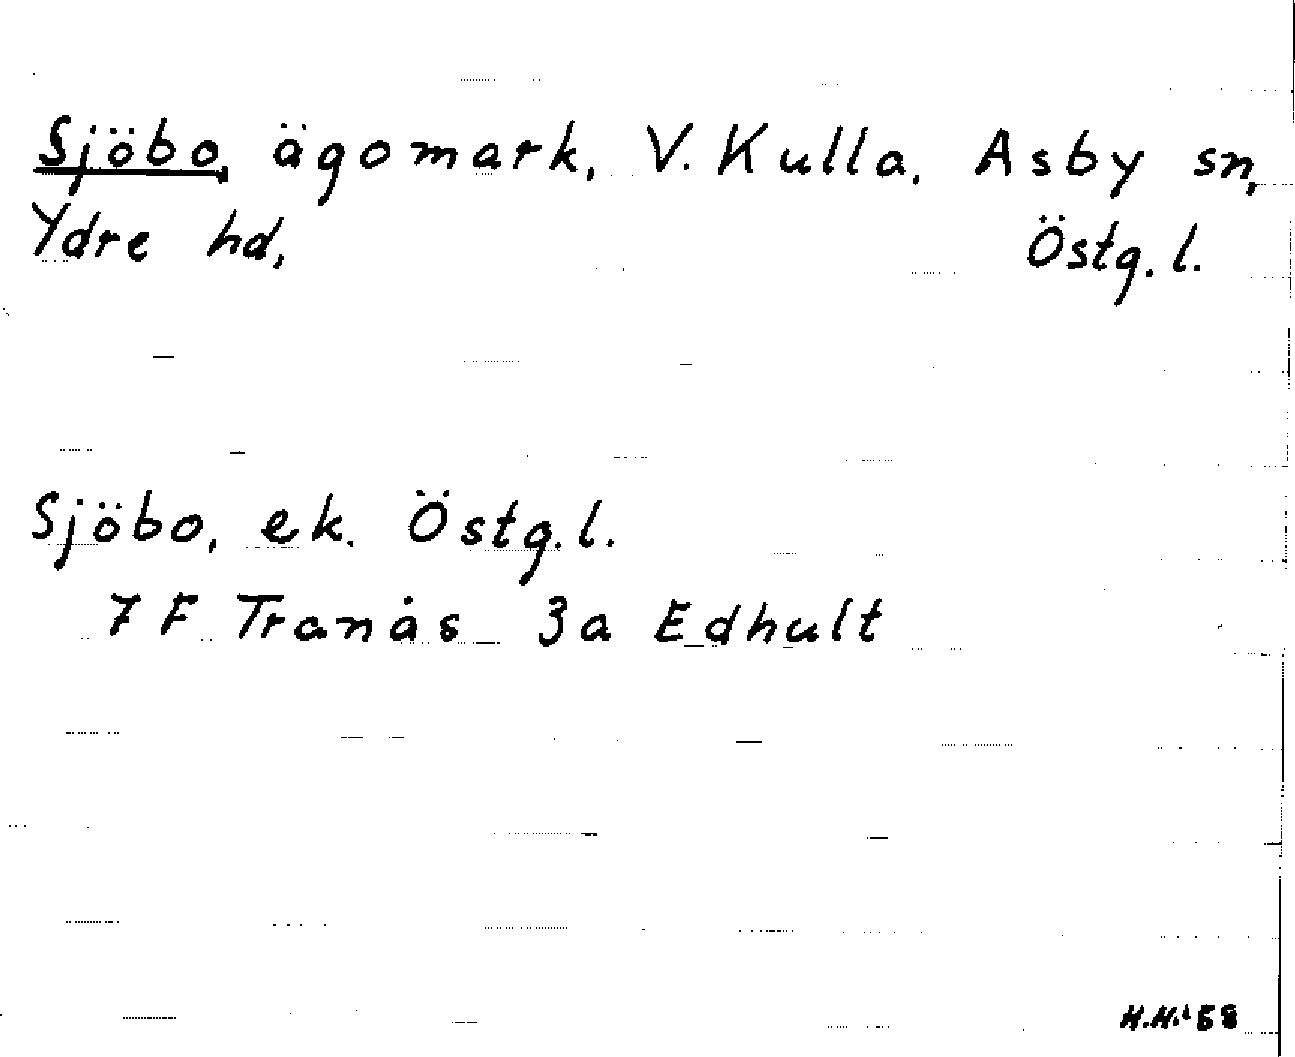 Sjöbo, ägomark, V. Kulla, Asby sn,
Ydre hd, Östg. l.
Sjöbo, ek. Östg. l.
7 F Tranås 3a Edhult
H.H.'58